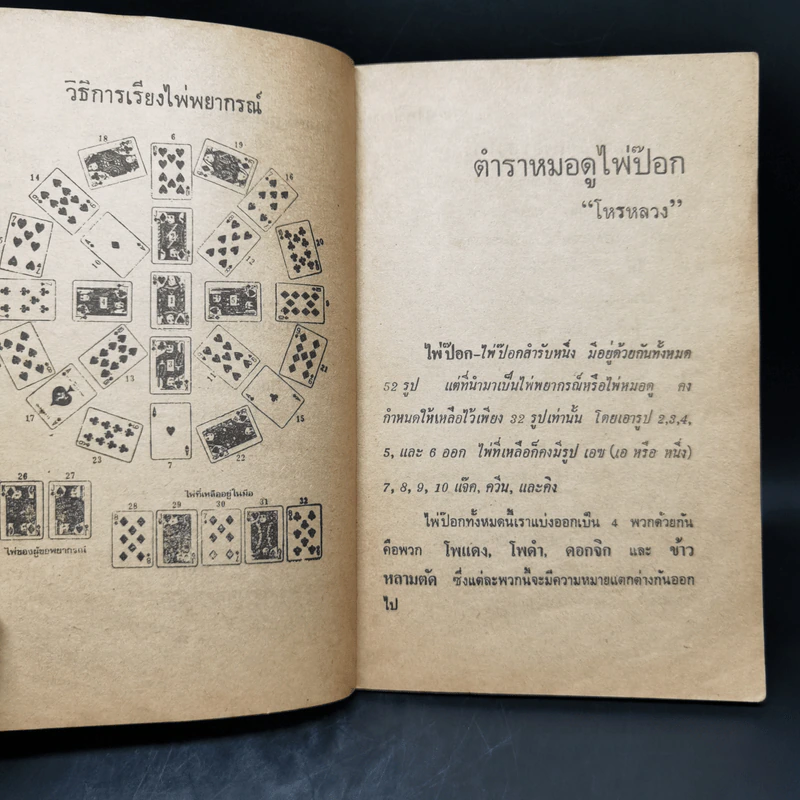 วิธีการเรียงไพ่พยากรณ์
18
6
19
14
16
10
12
20
17
13
11
15
23
7
22
26
27
ไพ่ของผู้ขอพยากรณ์
ไพ่ที่เหลืออยู่ในมือ
28
29
30
31
33
ตำราหมอดูไพ่ป๊อก
“โหรหลวง”
ไพ่ป๊อก-ไพ่ป๊อกสำรับหนึ่ง มีอยู่ด้วยกันทั้งหมด
52 รูป แต่ที่นำมาเป็นไพ่พยากรณ์หรือไพ่หมอดู คง
กำหนดให้เหลือไว้เพียง 32 รูปเท่านั้น โดยเอารูป 2,3,4,
5, และ 6 ออก ไพ่ที่เหลือก็คงมีรูป เอซ (เอ หรือ หนึ่ง)
7, 8, 9, 10 แจ๊ค, ควีน, และคิง
ไพ่ป๊อกทั้งหมดนี้เราแบ่งออกเป็น 4 พวกด้วยกัน
คือพวก โพแดง, โพดำ, ดอกจิก และ ข้าว
หลามตัด ซึ่งแต่ละพวกนี้จะมีความหมายแตกต่างกันออก
ไป